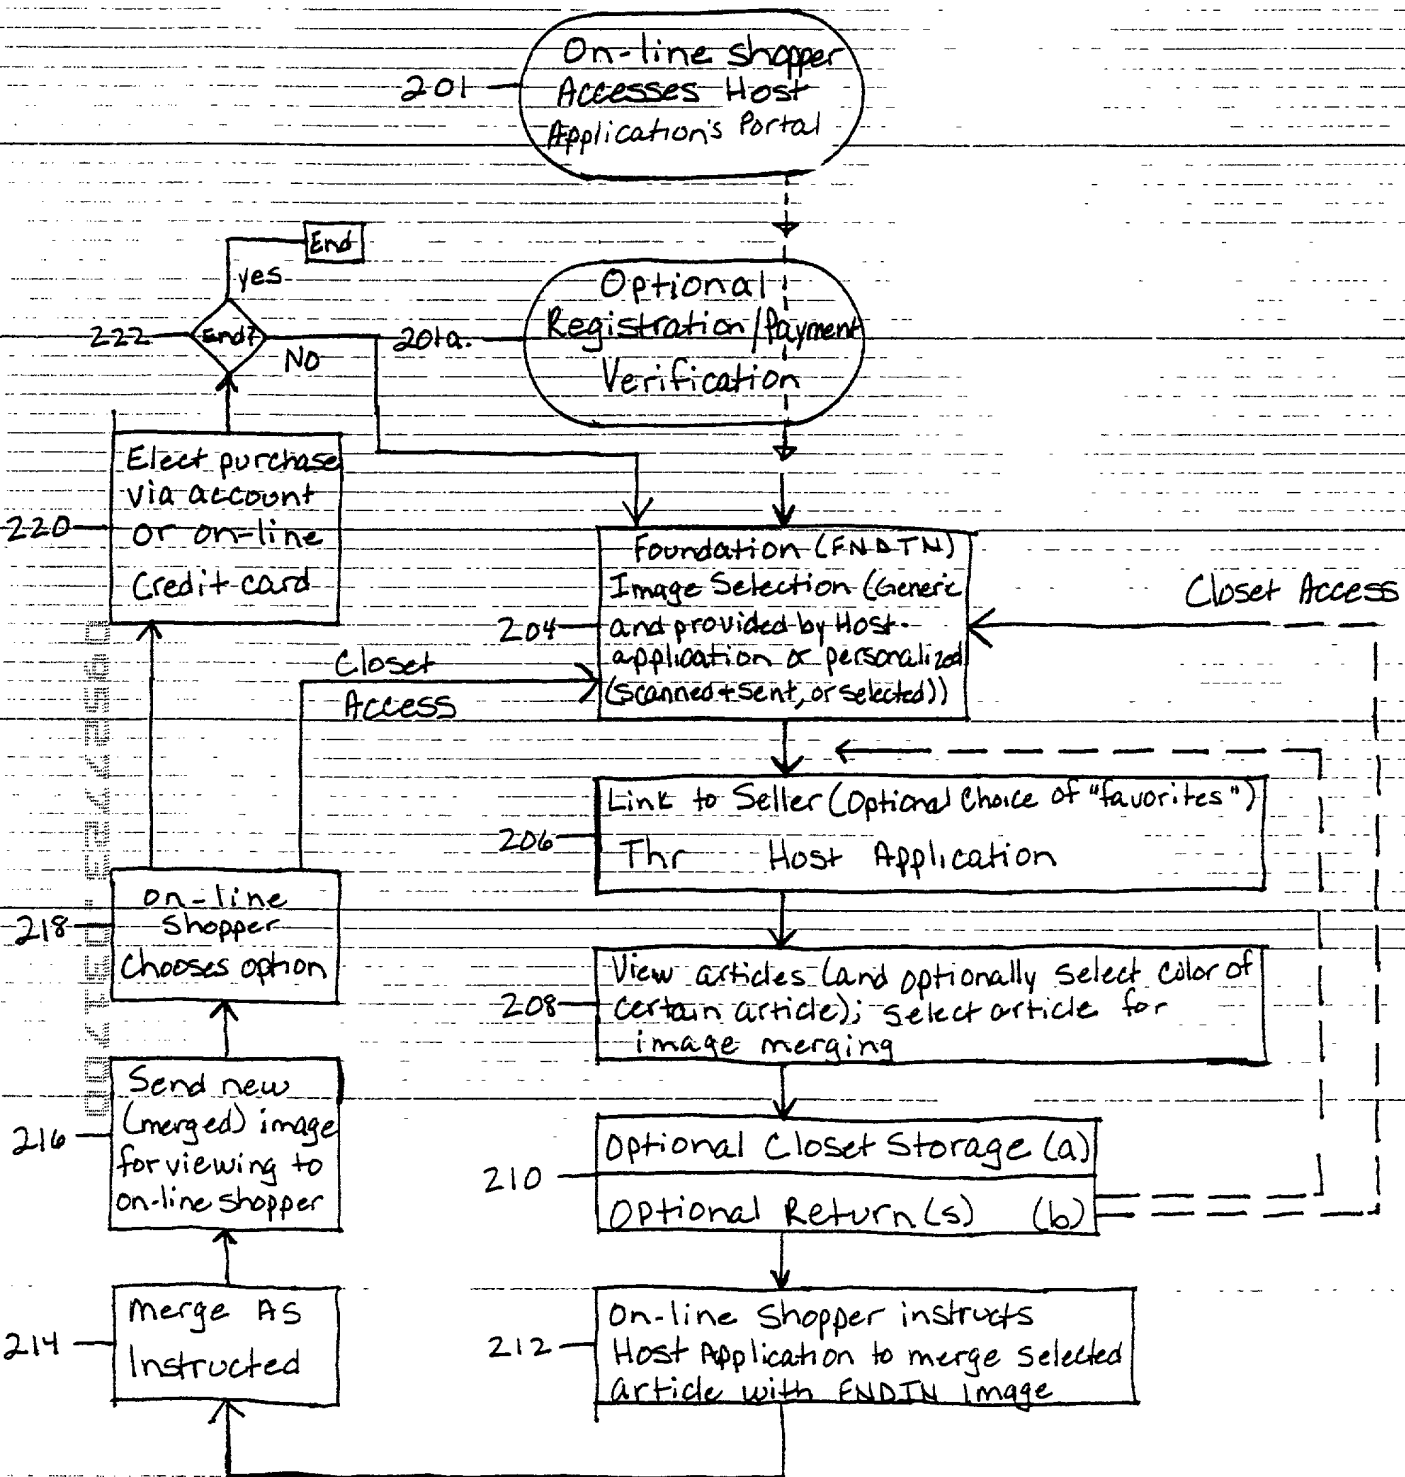 On-line shopper
Accesses Host
Application's Portal
201
End
yes
Optional
Registration/Payment
Verification
201a.
222
End?
No
Elect purchase
via account
or on-line
Credit card
220
Foundation (FNDTN)
Image Selection (Generic
and provided by Host
application or personalized
(scanned + sent, or selected))
204
Closet Access
Closet
Access
Link to Seller (Optional Choice of "favorites")
Thr Host Application
206
on-line
Shopper
Chooses option
218
View articles (and optionally select color of
certain article); select article for
image merging
208
Send new
(merged) image
for viewing to
on-line shopper
216
Optional Closet Storage (a)
Optional Return(s) (b)
210
merge As
Instructed
214
On-line Shopper instructs
Host Application to merge selected
article with FNDTN Image
212